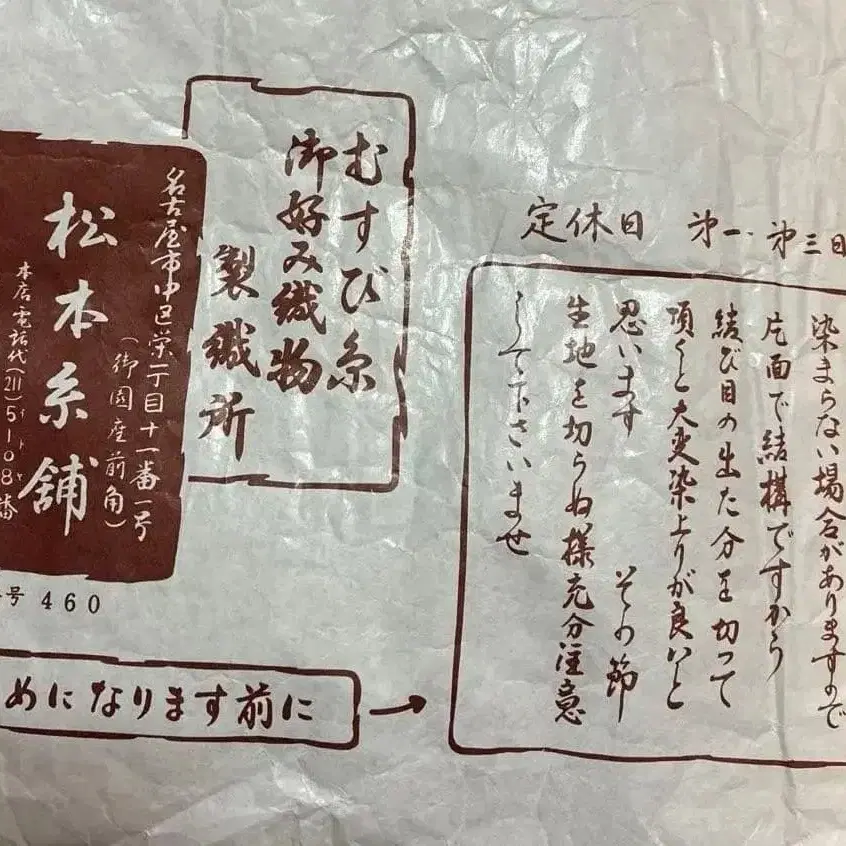 むすび糸
御好み織物
製織所
名古屋市中区栄一丁目十一番一号
(御園座前角)
松本糸舗
本店電話代(211)5108番
イトヤ
号 460
めになります前に
→
定休日 第一、第三日
染まらない場合がありますので
片面で結構ですから
結び目の出た分を切って
頂くと大変染上りが良いと
思います その節
生地を切らぬ様充分注意
して下さいませ